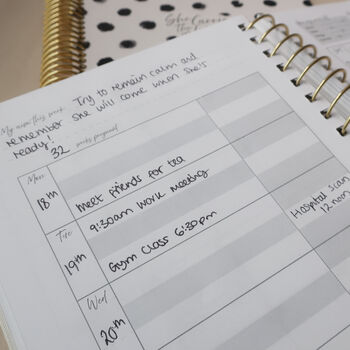 She Carries
My aim this week: Try to remain calm and
remember she will come when she's
ready!
32 weeks pregnant
Mon
18th
meet friends for tea
Tue
19th
9:30am work meeting
Gym class 6:30pm
Hospital Scan
12 noon
Wed
20th